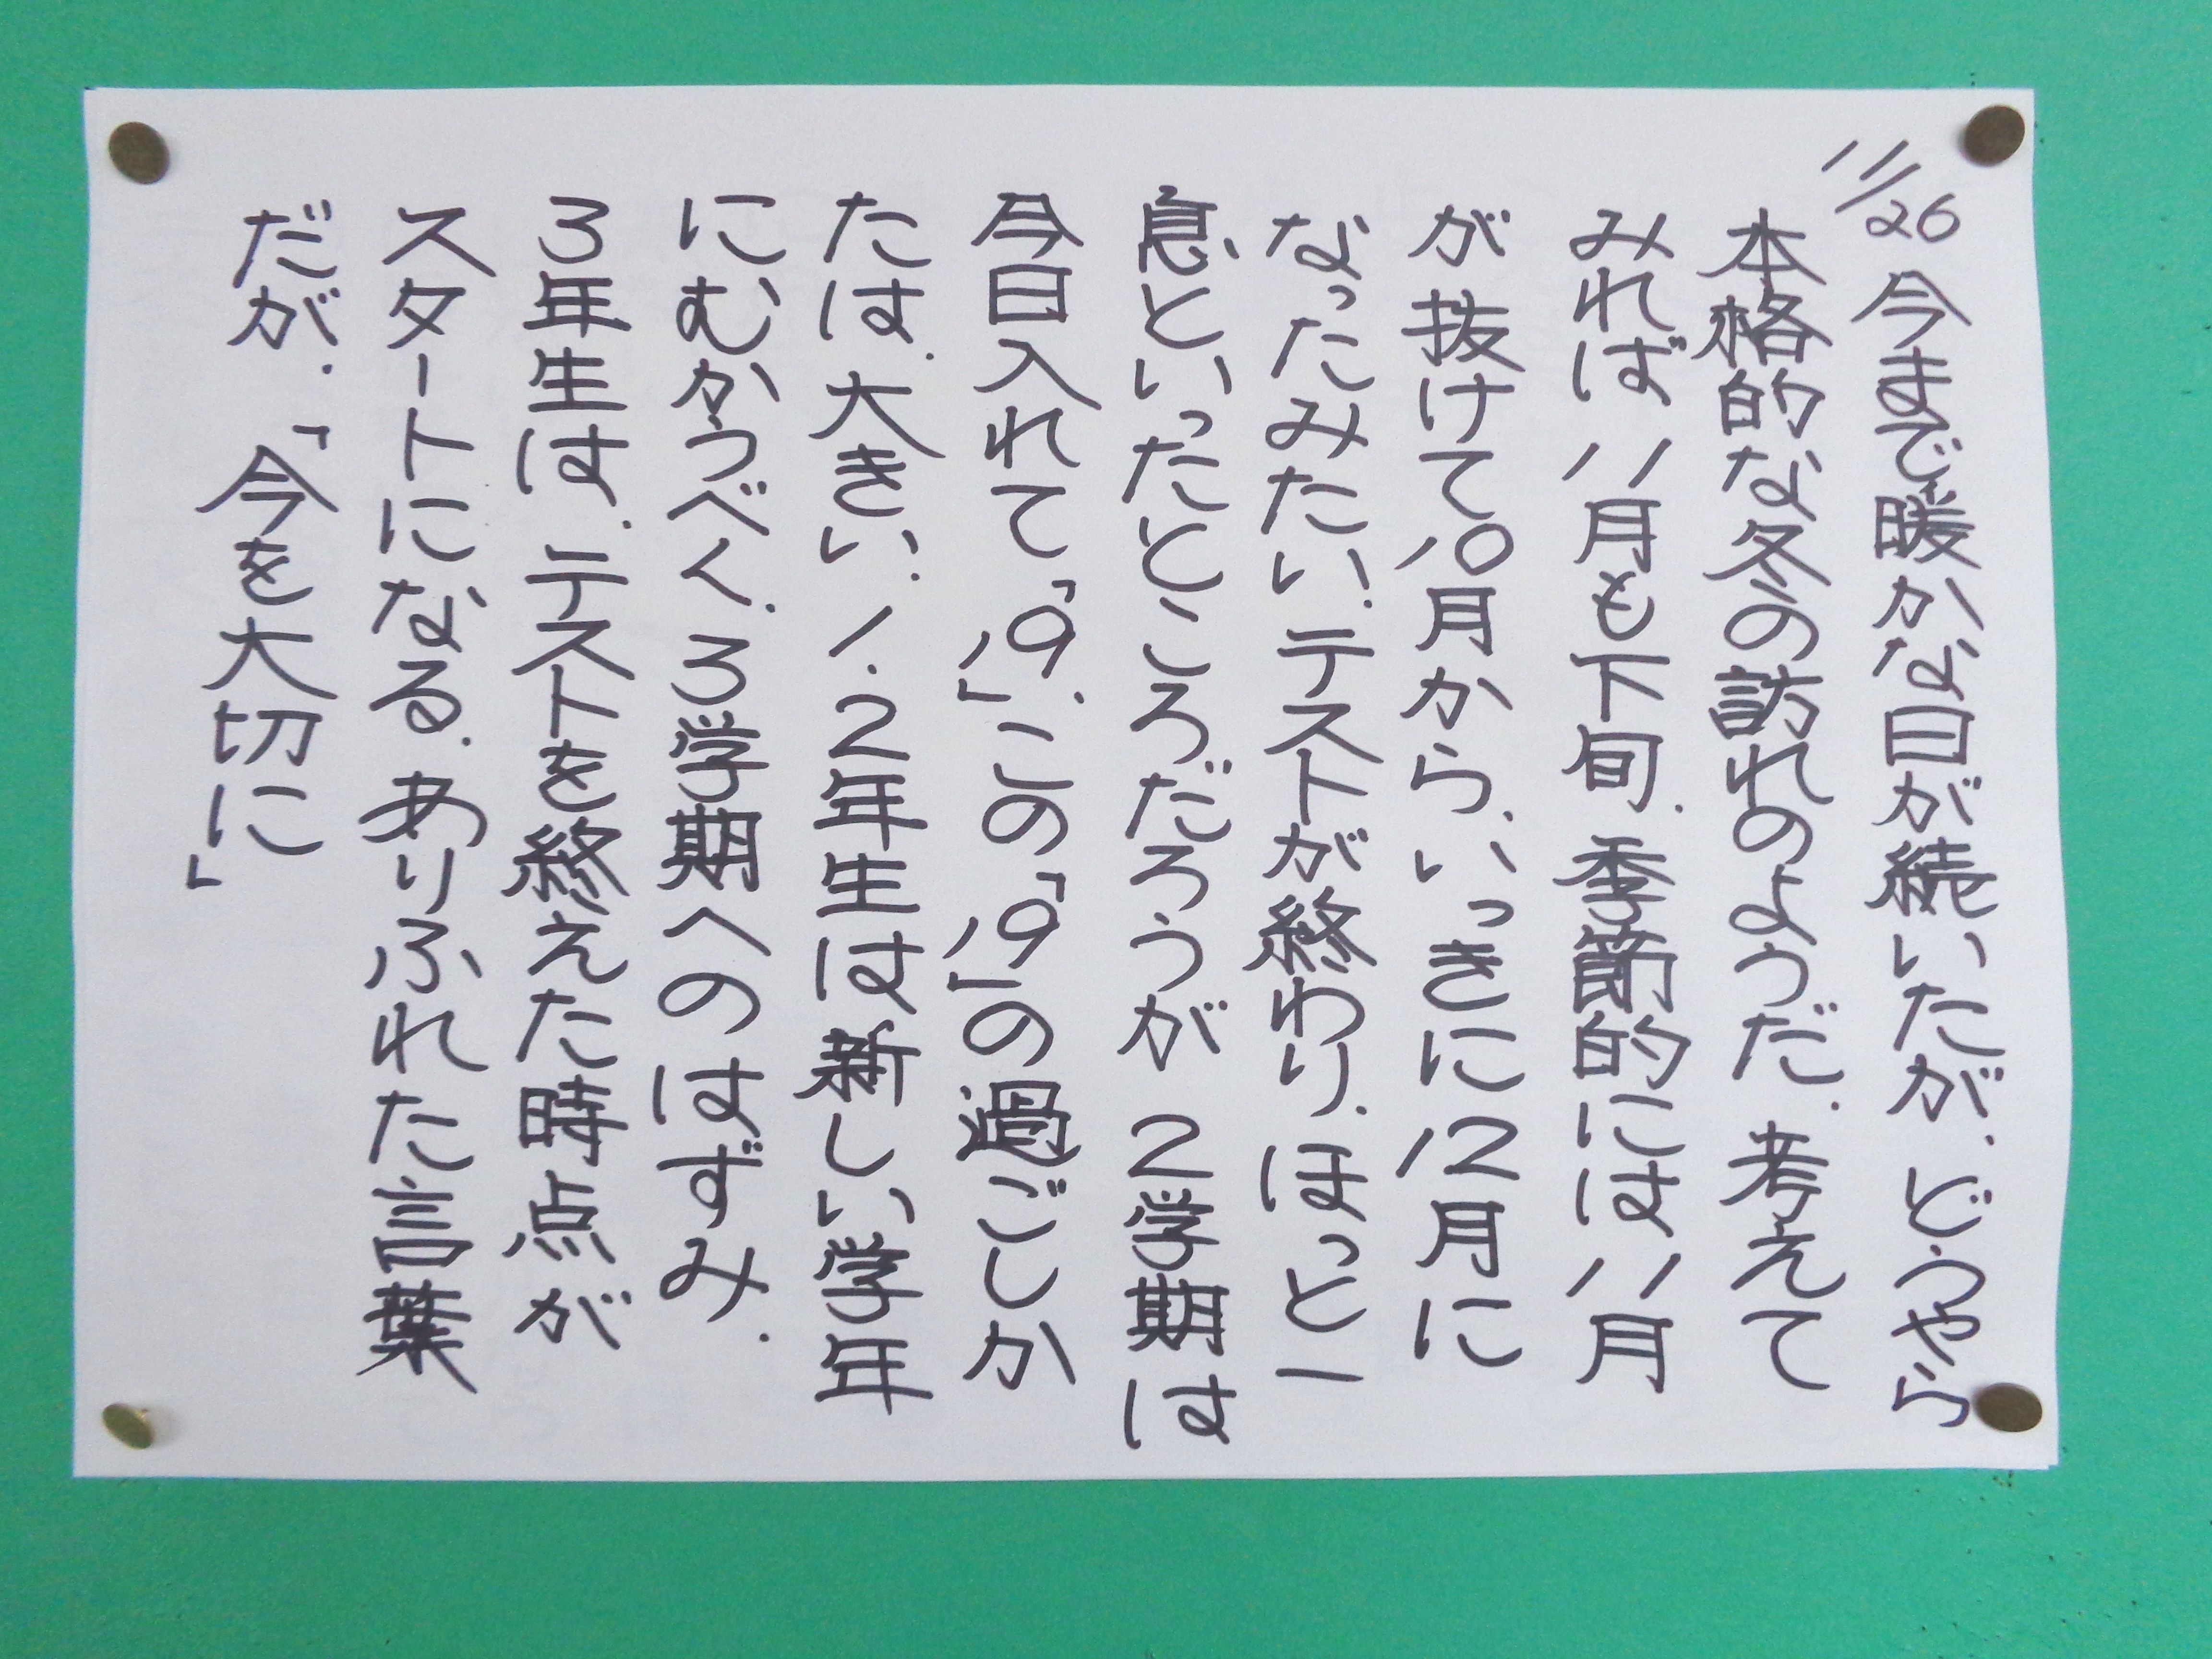 11/26 今まで暖かな日が続いたが、どうやら
本格的な冬の訪れのようだ。考えて
みれば11月も下旬、季節的には11月
が抜けて10月から、いっきに12月に
なったみたい。テストが終わり、ほっと一
息といったところだろうが 2学期は
今日入れて「19」。この「19」の過ごしか
たは、大きい。1、2年生は新しい学年
にむかうべく、3学期へのはずみ、
3年生は、テストを終えた時点が
スタートになる。ありふれた言葉
だが、「今を大切に」